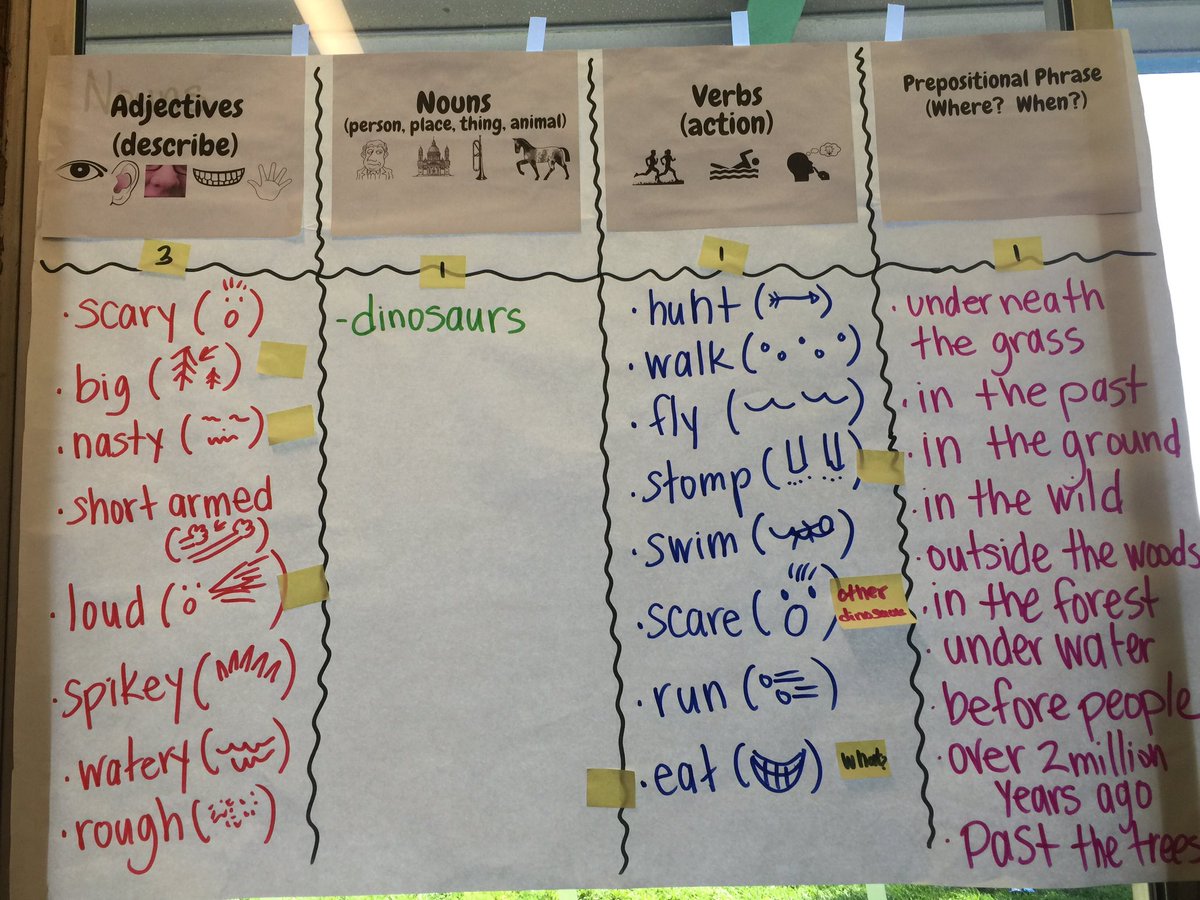 Nouns
Adjectives
(describe)
3
·scary ( )
·big ( )
·nasty ( )
·short armed
( )
·loud ( )
·spikey ( )
·watery ( )
·rough ( )
Nouns
(person, place, thing, animal)
1
-dinosaurs
Verbs
(action)
1
·hunt ( )
·walk ( )
·fly ( )
·stomp ( )
·swim ( )
·scare ( )
other
dinosaurs
·run ( )
·eat ( )
What?
Prepositional Phrase
(Where? When?)
1
·underneath
the grass
·in the past
·in the ground
·in the wild
·outside the woods
·in the forest
·under water
·before people
·over 2 million
years ago
·Past the trees